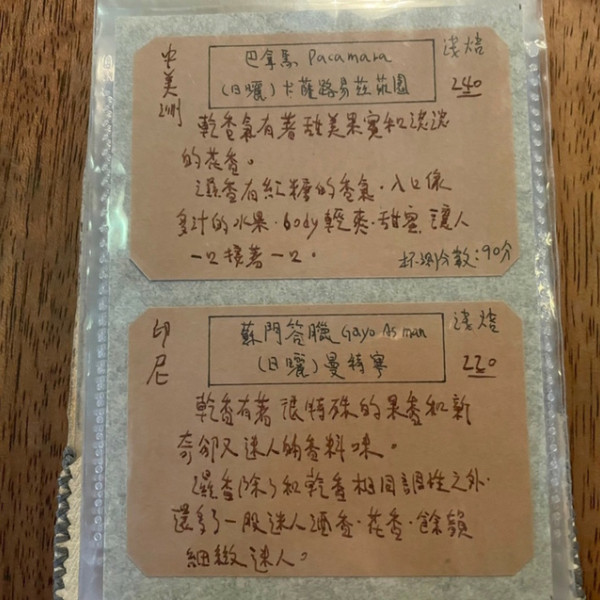 中美洲
巴拿馬 Pacamara
(日曬)卡薩路易茲莊園
淺焙
240
乾香氣有著甜美果實和淡淡
的花香。
濕香有紅糖的香氣,入口像
多汁的水果,body輕爽,甜蜜讓人
一口接著一口。
杯測分數:90分
印尼
蘇門答臘 Gayo Asman
(日曬)曼特寧
淺焙
220
乾香有著很特殊的果香和新
奇卻又迷人的香料味。
濕香除了和乾香相同調性之外,
還多了一股迷人酒香,花香,餘韻
細緻迷人。